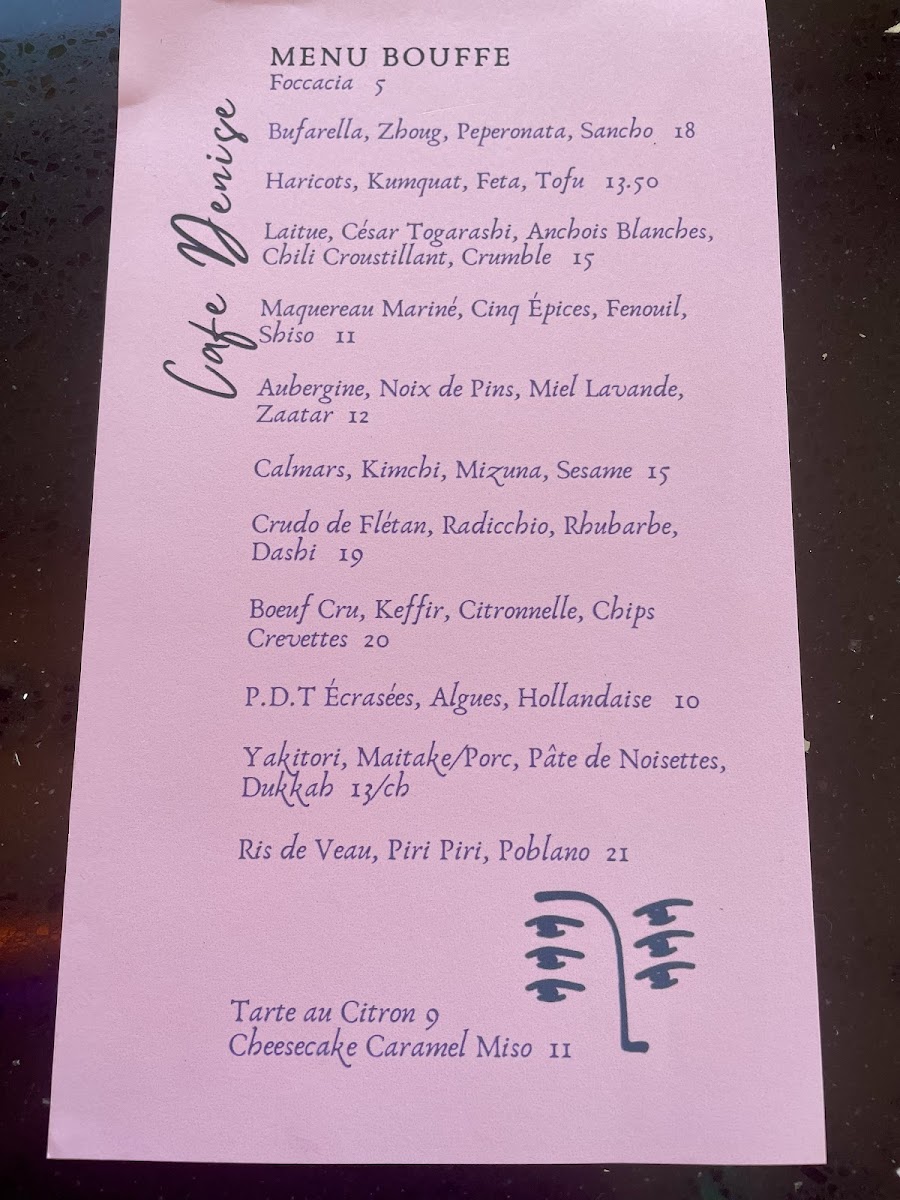 MENU BOUFFE
Foccacia 5
Cafe Denise
Bufarella, Zhoug, Peperonata, Sancho 18
Haricots, Kumquat, Feta, Tofu 13.50
Laitue, César Togarashi, Anchois Blanches,
Chili Croustillant, Crumble 15
Maquereau Mariné, Cinq Épices, Fenouil,
Shiso 11
Aubergine, Noix de Pins, Miel Lavande,
Zaatar 12
Calmars, Kimchi, Mizuna, Sesame 15
Crudo de Flétan, Radicchio, Rhubarbe,
Dashi 19
Boeuf Cru, Keffir, Citronnelle, Chips
Crevettes 20
P.D.T Écrasées, Algues, Hollandaise 10
Yakitori, Maitake/Porc, Pâte de Noisettes,
Dukkah 13/ch
Ris de Veau, Piri Piri, Poblano 21
Tarte au Citron 9
Cheesecake Caramel Miso 11